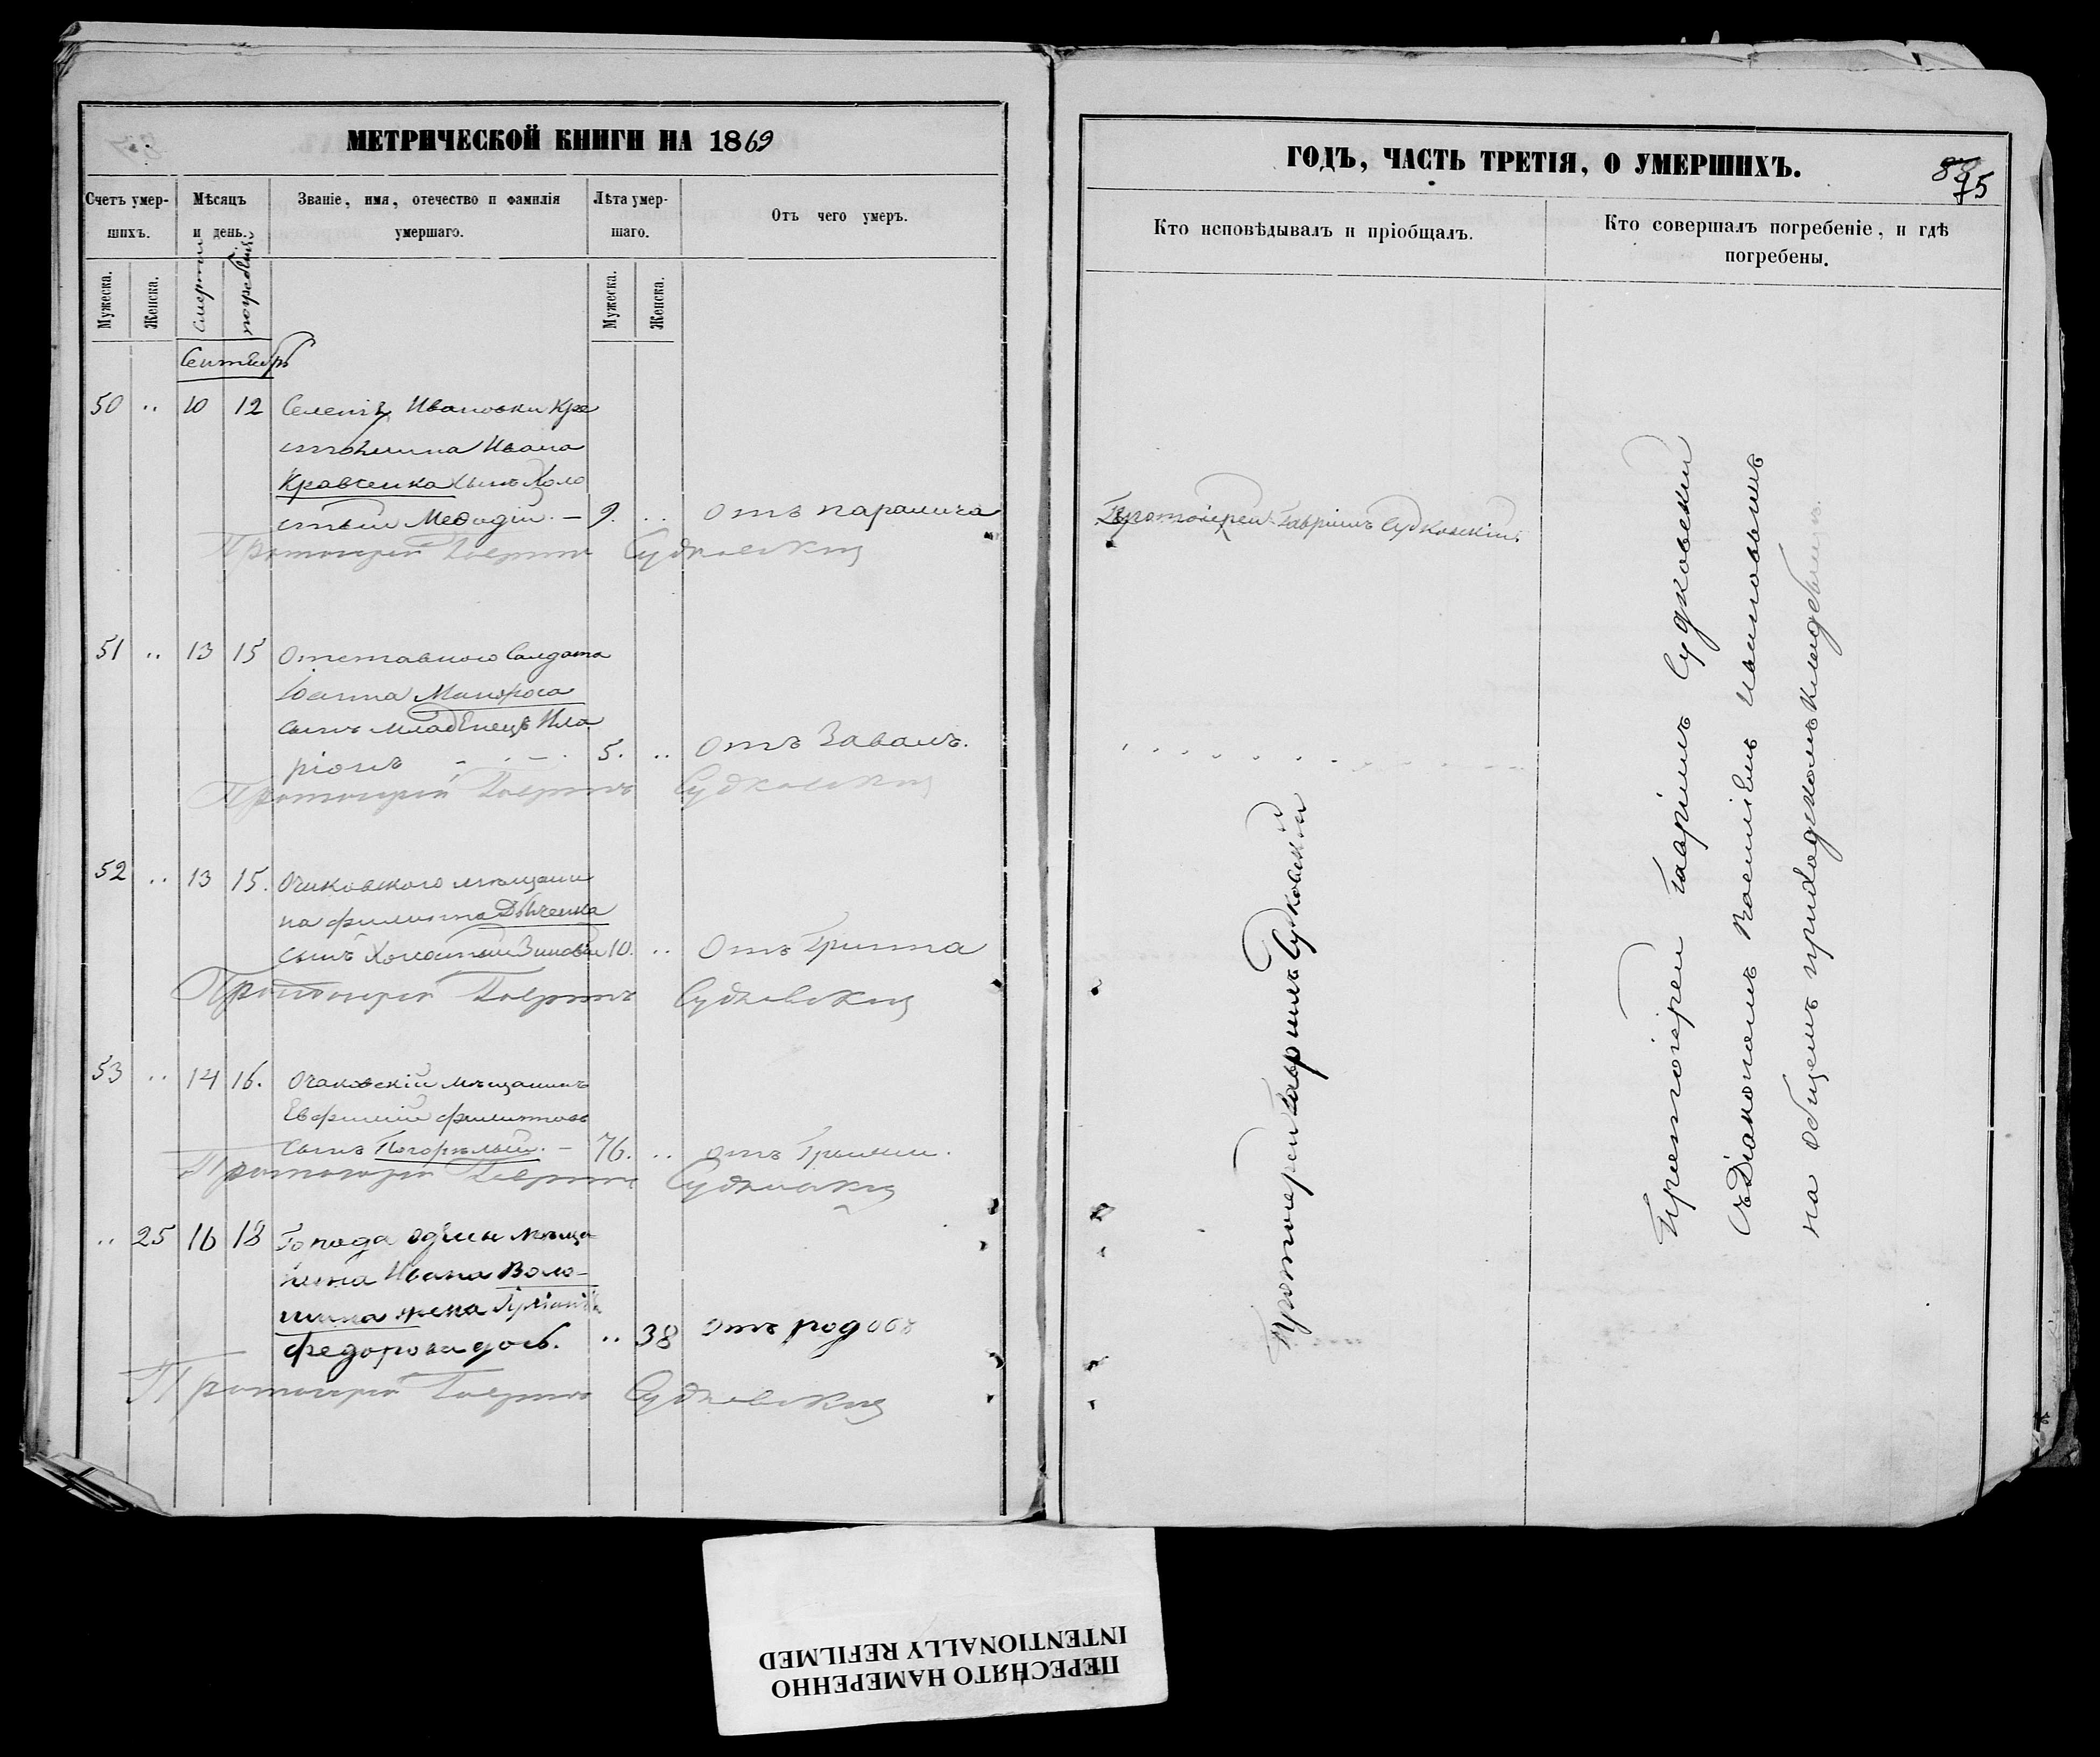 МЕТРИЧЕСКОЙ КНИГИ НА 1869
Счетъ умер-
шихъ.
Мѣсяцъ
и день.
Званіе, имя, отечество и фамилія
умершаго.
Лѣта умер-
шаго.
Отъ чего умеръ.
Мужеска.
Женска.
смерти
погребенія
Мужеска.
Женска.
Сентябрь
50 .. 10 12 Селенія Ивановки Кре
стьянина Ивана
Кравченка сынъ Холо
стый Мефодій. — 9. .. отъ паралича
Протоіерей Гавріилъ Судковскій
51 .. 13 15 Отставного Салдата
Іоанна
сынъ младенецъ Ила
ріонъ 5. .. Отъ Завалъ.
Протоіерей Гавріилъ Судковскій
52 .. 13 15. Очаковского мѣщани
на Филиппа
сынъ Холостый Зиновій 10. .. Отъ Грипа
Протоіерей Гавріилъ Судковскій
53 .. 14 16. Очаковскій мѣщанинъ
Евфимій Филипповъ
сынъ Погорѣлый. — 76. .. отъ
Протоіерей Гавріилъ Судковскій
.. 25 16 18 Города Одессы Мѣща
нина Ивана Воло-
шина жена
Федорова дочь. .. 38 отъ родовъ
Протоіерей Гавріилъ Судковскій
ГОДЪ, ЧАСТЬ ТРЕТІЯ, О УМЕРШИХЪ.
95
Кто исповѣдывалъ и пріобщалъ.
Кто совершалъ погребеніе, и гдѣ
погребены.
Протоіерей Гавріилъ Судковскій.
Протоіерей Гавріилъ Судковскій
Протоіерей Гавріилъ Судковскій
съ Діакономъ Василіемъ
на общемъ приходскомъ кладбищѣ.
ПЕРЕСНЯТО НАМЕРЕННО
INTENTIONALLY REFILMED